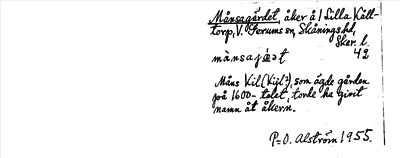 Månsagärdet, åker å / Lilla Käll-
torp, V. Gerums sn, Skånings hd,
Skar. l.
månsajæt 42
Måns Kil (Kijl?), som ägde gården
på 1600-talet, torde ha givit
namn åt åkern.
P-O. Alström 1955.